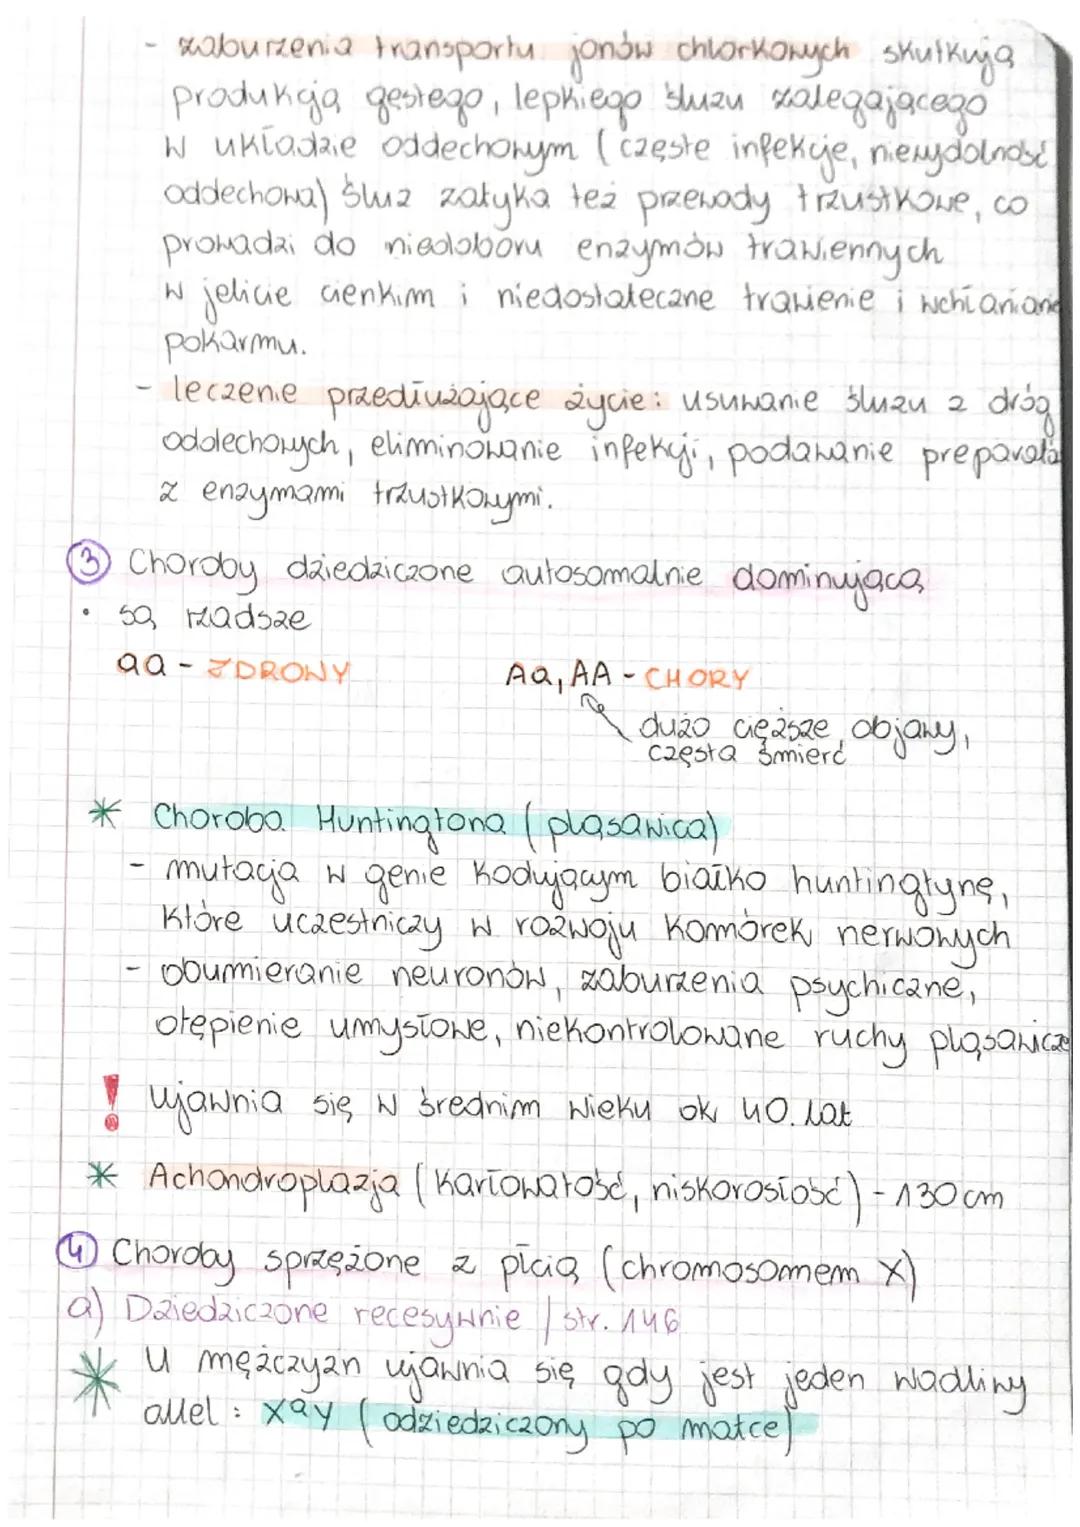 - zaburzenia transportu jonów chlorkowych skutkują
produkcją gęstego, lepkiego śluzu zalegającego
w układzie oddechowym (częste infekcje, niewydolność
oddechowa) śluz zatyka też przewody trzustkowe, co
prowadzi do niedoboru enzymów trawiennych
w jelicie cienkim i niedostateczne trawienie i wchłanianie
pokarmu.
- leczenie przedłużające życie: usuwanie śluzu z dróg
oddechowych, eliminowanie infekcji, podawanie preparató
z enzymami trzustkowymi.
③ Choroby dziedziczone autosomalnie dominująco
• są rzadsze
aa - ZDROWY Aa, AA - CHORY
dużo cięższe objawy,
częsta śmierć
* Choroba Huntingtona (pląsawica)
- mutacja w genie kodującym białko huntingtynę,
które uczestniczy w rozwoju komórek nerwowych
- obumieranie neuronów, zaburzenia psychiczne,
otępienie umysłowe, niekontrolowane ruchy pląsawicze
! Ujawnia się w średnim wieku ok 40. lat
* Achondroplazja (karłowatość, niskorosłość) - 130 cm
④ Choroby sprzężone z płcią (chromosomem X)
a) Dziedziczone recesywnie / str. 146
* U mężczyzn ujawnia się gdy jest jeden wadliwy
allel : Xᵃy (odziedziczony po matce)